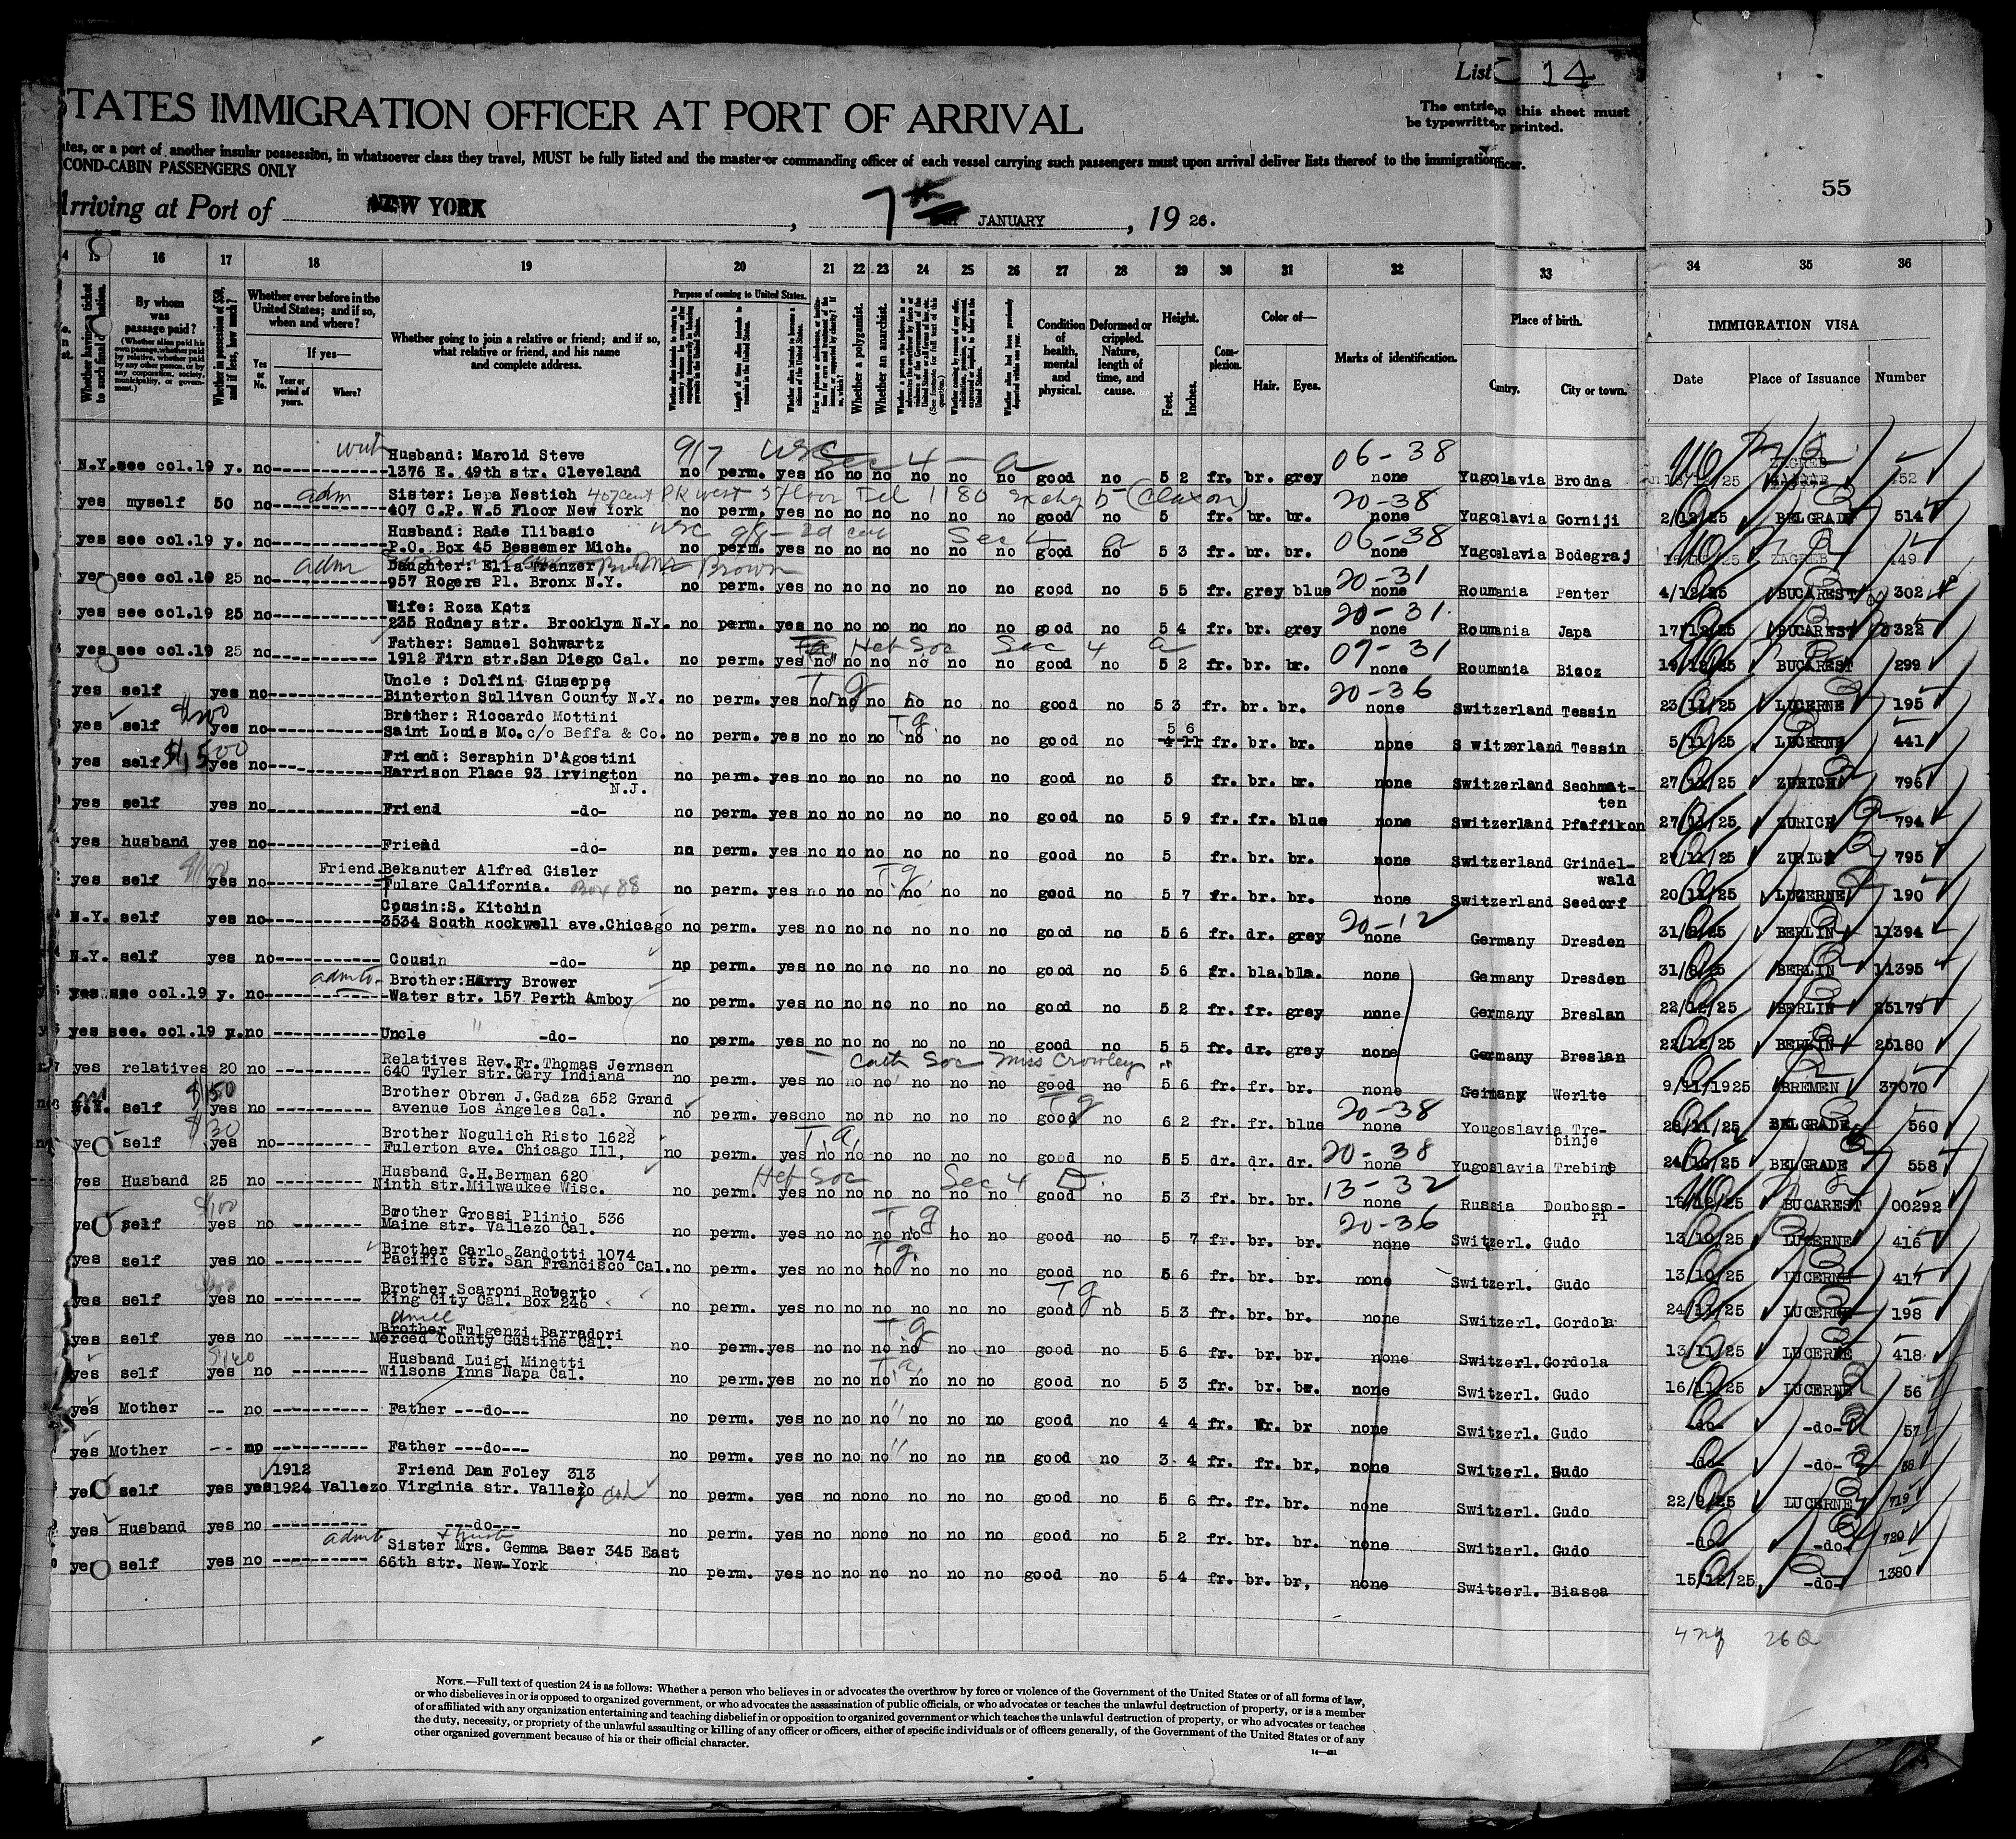 List 14
STATES IMMIGRATION OFFICER AT PORT OF ARRIVAL
The entries on this sheet must
be typewritten or printed.
ates, or a port of another insular possession, in whatsoever class they travel, MUST be fully listed and the master or commanding officer of each vessel carrying such passengers must upon arrival deliver lists thereof to the immigration officer.
COND-CABIN PASSENGERS ONLY
55
Arriving at Port of NEW YORK, 7th JANUARY, 1926.
15 16 17 18 19 20 21 22 23 24 25 26 27 28 29 30 31 32 33 34 35 36
By whom was passage paid?
Whether ever before in the United States; and if so, when and where?
If yes—
Yes or No.
Year or period of years.
Where?
Whether going to join a relative or friend; and if so, what relative or friend, and his name and complete address.
Purpose of coming to United States.
Whether a polygamist.
Whether an anarchist.
Condition of health, mental and physical.
Deformed or crippled. Nature, length of time, and cause.
Height.
Feet. Inches.
Complexion.
Color of—
Hair. Eyes.
Marks of identification.
Place of birth.
City or town.
IMMIGRATION VISA
Date Place of Issuance Number
Husband: Marold Steve 917 USC Sec 4 - a 06-38
N.Y. see col.19 y. no 1376 E. 49th str. Cleveland no perm. yes no no no no no no good no 5 2 fr. br. grey none Yugoslavia Brodna ZAGREB 452
Sister: Lepa Nestich 20-38
yes myself 50 no adm 407 C.P. W.5 Floor New York no perm. yes no no no no no no good no 5 fr. br. br. none Yugoslavia Gorniji 2/12/25 BELGRADE 514
Husband: Rade Ilibasic Sec 4 a 06-38
yes see col.19 y. no P.O. Box 45 Bessemer Mich. no perm. yes no no no no no no good no 5 3 fr. br. br. none Yugoslavia Bodegraj ZAGREB 449
adm Daughter: Elia Tranzer Brown 20-31
yes see col.19 25 no 957 Rogers Pl. Bronx N.Y. no perm. yes no no no no no no good no 5 5 fr. grey blue none Roumania Penter 4/12/25 BUCAREST 302
Wife: Roza Kotz 20-31
yes see col.19 25 no 235 Rodney str. Brooklyn N.Y. no perm. yes no no no no no no good no 5 4 fr. br. grey none Roumania Japa 17/12/25 BUCAREST 322
Father: Samuel Schwartz Heb Soc Sec 4 a 07-31
yes see col.19 25 no 1912 Firn str.San Diego Cal. no perm. yes no no no no no no good no 5 2 fr. br. br. none Roumania Bicoz 19/12/25 BUCAREST 299
Uncle : Dolfini Giuseppe T g 20-36
yes self yes no Binterton Sullivan County N.Y. no perm. yes no no no no no no good no 5 3 fr. br. br. none Switzerland Tessin 23/11/25 LUCERNE 195
$200 Brother: Riccardo Mottini T.g. 5 6
yes self yes no Saint Louis Mo. c/o Beffa & Co. no perm. yes no no no no no no good no 4 11 fr. br. br. none Switzerland Tessin 5/11/25 LUCERNE 441
$1,500 Friend: Seraphin D'Agostini
yes self yes no Harrison Place 93 Irvington N.J. no perm. yes no no no no no no good no 5 fr. br. br. none Switzerland Sechmatten 27/11/25 ZURICH 796
yes self yes no Friend -do- no perm. yes no no no no no no good no 5 9 fr. fr. blue none Switzerland Pfaffikon 27/11/25 ZURICH 794
yes husband yes no Friend -do- no perm. yes no no no no no no good no 5 fr. br. br. none Switzerland Grindelwald 27/11/25 ZURICH 795
Friend Bekanuter Alfred Gisler T.g.
yes self yes no Tulare California. Box 88 no perm. yes no no no no no no good no 5 7 fr. br. br. none Switzerland Seedorf 20/11/25 LUCERNE 190
Cousin:S. Kitchin 20-12
N.Y. self yes no 3534 South Rockwell ave.Chicago no perm. yes no no no no no no good no 5 6 fr. dr. grey none Germany Dresden 31/8/25 BERLIN 11394
N.Y. self yes no Cousin -do- no perm. yes no no no no no no good no 5 6 fr. bla. bla. none Germany Dresden 31/8/25 BERLIN 11395
Brother:Harry Brower
yes see col.19 y. no Water str. 157 Perth Amboy no perm. yes no no no no no no good no 5 2 fr. fr. grey none Germany Breslan 22/12/25 BERLIN 25179
yes see. col.19 y. no Uncle -do- no perm. yes no no no no no no good no 5 5 fr. dr. grey none Germany Breslan 22/12/25 BERLIN 25180
Relatives Rev.Fr.Thomas Jernsen Cath Soc Miss Crowley
yes relatives 20 no 640 Tyler str.Gary Indiana no perm. yes no no no no no no good no 5 6 fr. fr. br. none Germany Werlte 9/11/1925 BREMEN 37070
$150 Brother Obren J.Gadza 652 Grand T g 20-38
N.Y. self yes no avenue Los Angeles Cal. no perm. yes no no no no no no good no 6 2 fr. fr. blue none Yougoslavia Trebinje 28/11/25 BELGRADE 560
$30 Brother Nogulich Risto 1622 T.a. 20-38
yes self yes no Fulerton ave. Chicago Ill, no perm. yes no no no no no no good no 5 5 dr. dr. dr. none Yugoslavia Trebinje 24/10/25 BELGRADE 558
Husband G.H.Berman 620 Heb Soc Sec 4 D. 13-32
yes Husband 25 no Ninth str.Milwaukee Wisc. no perm. yes no no no no no no good no 5 3 fr. br. br. none Russia Doubossori 16/12/25 BUCAREST 00292
$100 Brother Grossi Plinio 536 T g 20-36
yes self yes no Maine str. Vallezo Cal. no perm. yes no no no no no no good no 5 7 fr. br. br. none Switzerl. Gudo 13/10/25 LUCERNE 416
Brother Carlo Zandotti 1074 T g.
yes self yes no Pacific str. San Francisco Cal. no perm. yes no no no no no no good no 5 6 fr. br. br. none Switzerl. Gudo 13/10/25 LUCERNE 417
Brother Scaroni Roberto T g
yes self yes no King City Cal. Box 246 no perm. yes no no no no no no good no 5 3 fr. br. br. none Switzerl. Gordola 24/11/25 LUCERNE 198
Brother Fulgenzi Barradori T.g
yes self yes no Merced County Gustine Cal. no perm. yes no no no no no no good no 5 6 fr. br. br. none Switzerl. Gordola 13/11/25 LUCERNE 418
$140 Husband Luigi Minetti T.a.
yes self yes no Wilsons Inns Napa Cal. no perm. yes no no no no no no good no 5 3 fr. br. br. none Switzerl. Gudo 16/11/25 LUCERNE 56
yes Mother -- no Father ---do--- no perm. yes no no no no no no good no 4 4 fr. fr. br none Switzerl. Gudo -do- -do- 57
yes Mother -- no Father ---do--- no perm. yes no no no no no nn good no 3 4 fr. fr. br, none Switzerl. Gudo -do- -do- 58
1912 Friend Dan Foley 313
yes self yes yes 1924 Vallezo Virginia str. Vallejo Cal no perm. yes no no no no no no good no 5 6 fr. fr. br. none Switzerl. Gudo 22/9/25 LUCERNE 719
yes Husband yes no ---do--- no perm. yes no no no no no no good no 5 2 fr. br. br. none Switzerl. Gudo -do- -do- 720
Sister Mrs. Gemma Baer 345 East
yes self yes no 66th str. New-York no perm. yes no no no no no no good no 5 4 fr. br. br, none Switzerl. Biasca 15/12/25 -do- 1380
26 Q
NOTE.—Full text of question 24 is as follows: Whether a person who believes in or advocates the overthrow by force or violence of the Government of the United States or of all forms of law,
or who disbelieves in or is opposed to organized government, or who advocates the assassination of public officials, or who advocates or teaches the unlawful destruction of property, or is a member
of or affiliated with any organization entertaining and teaching disbelief in or opposition to organized government or which teaches the unlawful destruction of property, or who advocates or teaches
the duty, necessity, or propriety of the unlawful assaulting or killing of any officer or officers, either of specific individuals or of officers generally, of the Government of the United States or of any
other organized government because of his or their official character.